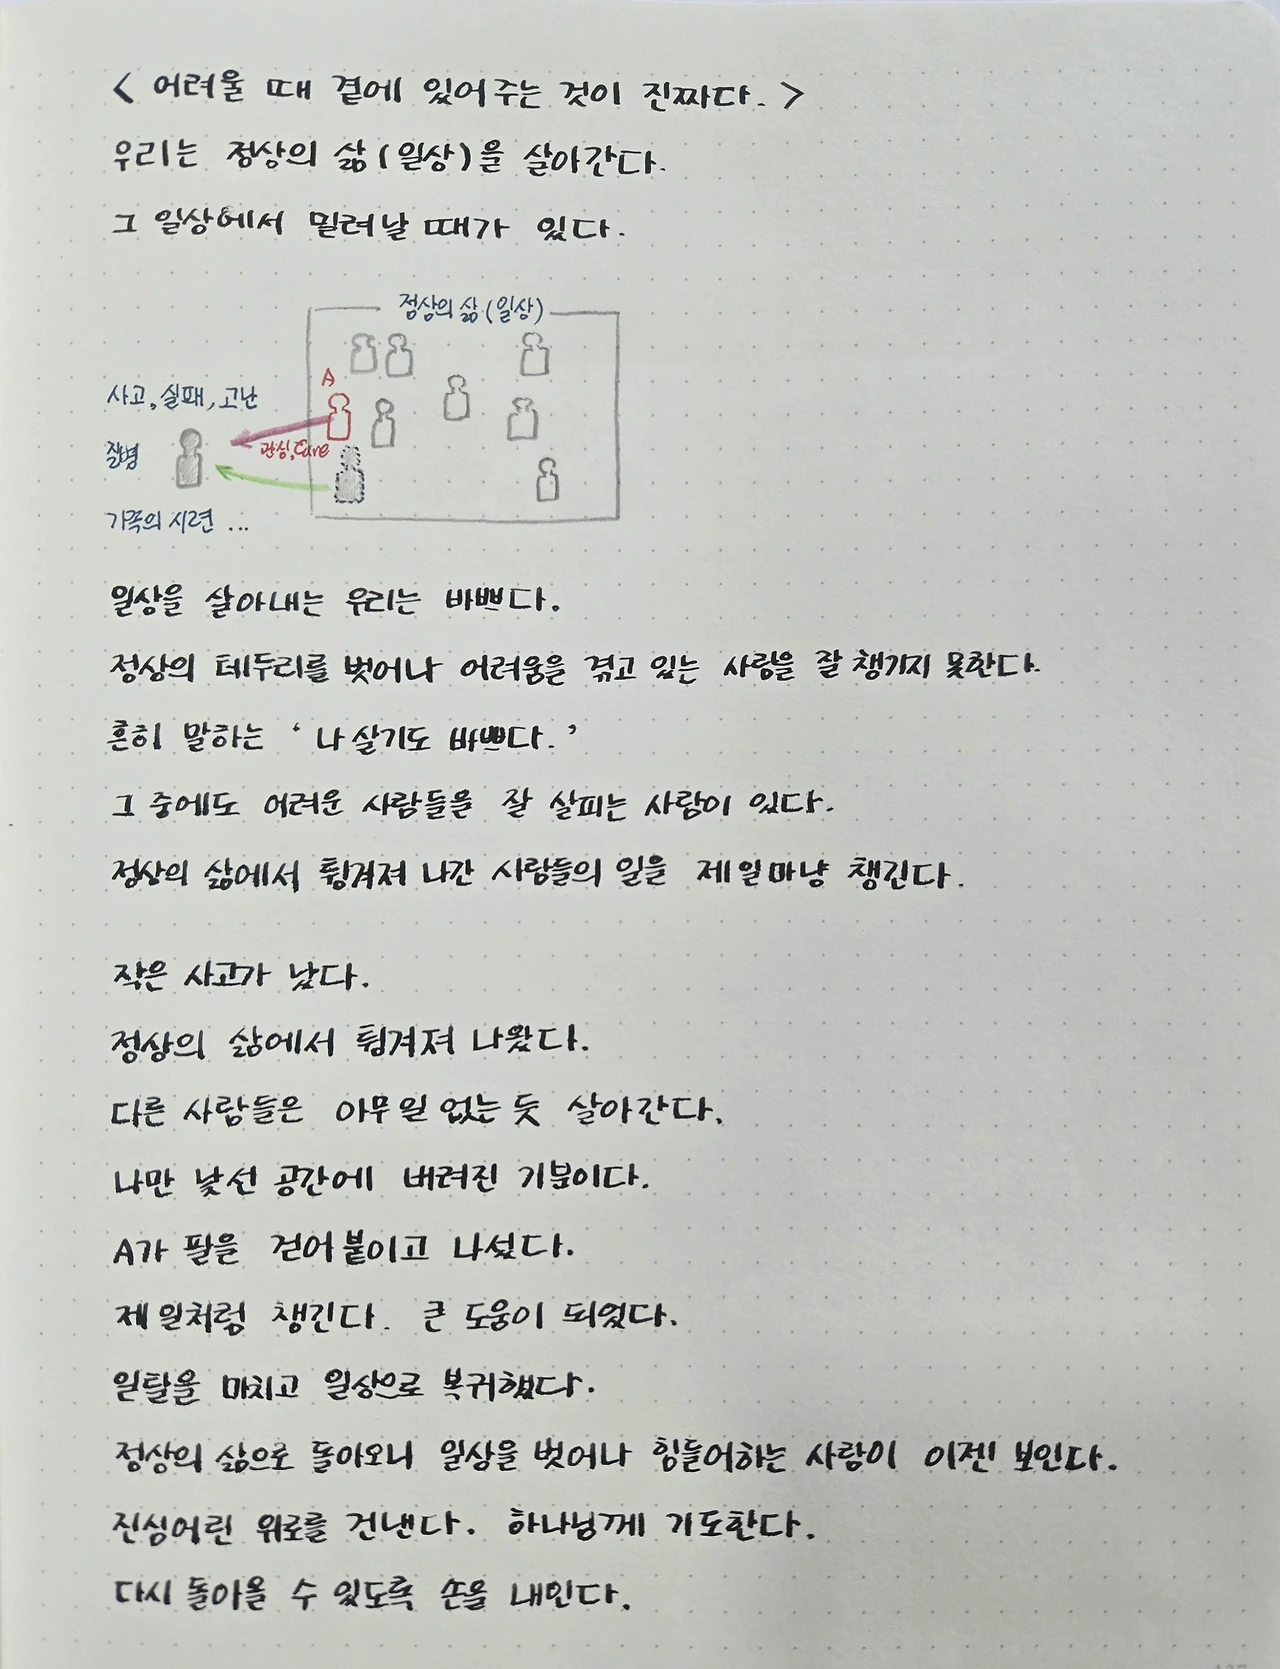 < 어려울 때 곁에 있어주는 것이 진짜다. >
우리는 정상의 삶(일상)을 살아간다.
그 일상에서 밀려날 때가 있다.
정상의 삶(일상)
A
사고, 실패, 고난
관심, Care
질병
가족의 시련 ...
일상을 살아내는 우리는 바쁘다.
정상의 테두리를 벗어나 어려움을 겪고 있는 사람을 잘 챙기지 못한다.
흔히 말하는 '나 살기도 바쁘다.'
그 중에도 어려운 사람들을 잘 살피는 사람이 있다.
정상의 삶에서 튕겨져 나간 사람들의 일을 제일마냥 챙긴다.
작은 사고가 났다.
정상의 삶에서 튕겨져 나왔다.
다른 사람들은 아무일 없는 듯 살아간다.
나만 낯선 공간에 버려진 기분이다.
A가 팔을 걷어붙이고 나섰다.
제 일처럼 챙긴다. 큰 도움이 되었다.
일탈을 마치고 일상으로 복귀했다.
정상의 삶으로 돌아오니 일상을 벗어나 힘들어하는 사람이 이젠 보인다.
진심어린 위로를 건낸다. 하나님께 기도한다.
다시 돌아올 수 있도록 손을 내민다.